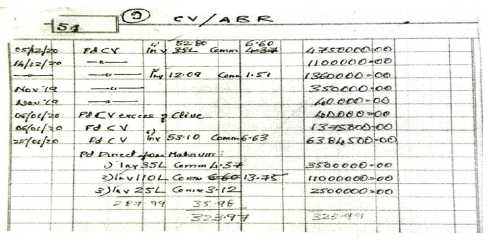 154 ② CV/ABR
52.80 6.60
05/12/20 Pd CV Inv 35L Comm 4.37 4750000=00
14/12/20 —"— 1100000=00
—"— —"— Inv 12.09 Comm 1.51 1360000=00
Nov '19 —"— 350000=00
Nov '19 —"— 40,000=00
06/01/20 Pd CV excess of Clive 40000=00
06/01/20 Pd CV 1375000=00
Pd CV Inv 53.10 Comm 6.63 6384500=00
Pd Direct from Mahavir:
1) Inv 35L Comm 4.37 3500000=00
2) Inv 110L Comm 13.75 11000000=00
3) Inv 25L Comm 3.12 2500000=00
287.99 35.98
323.97